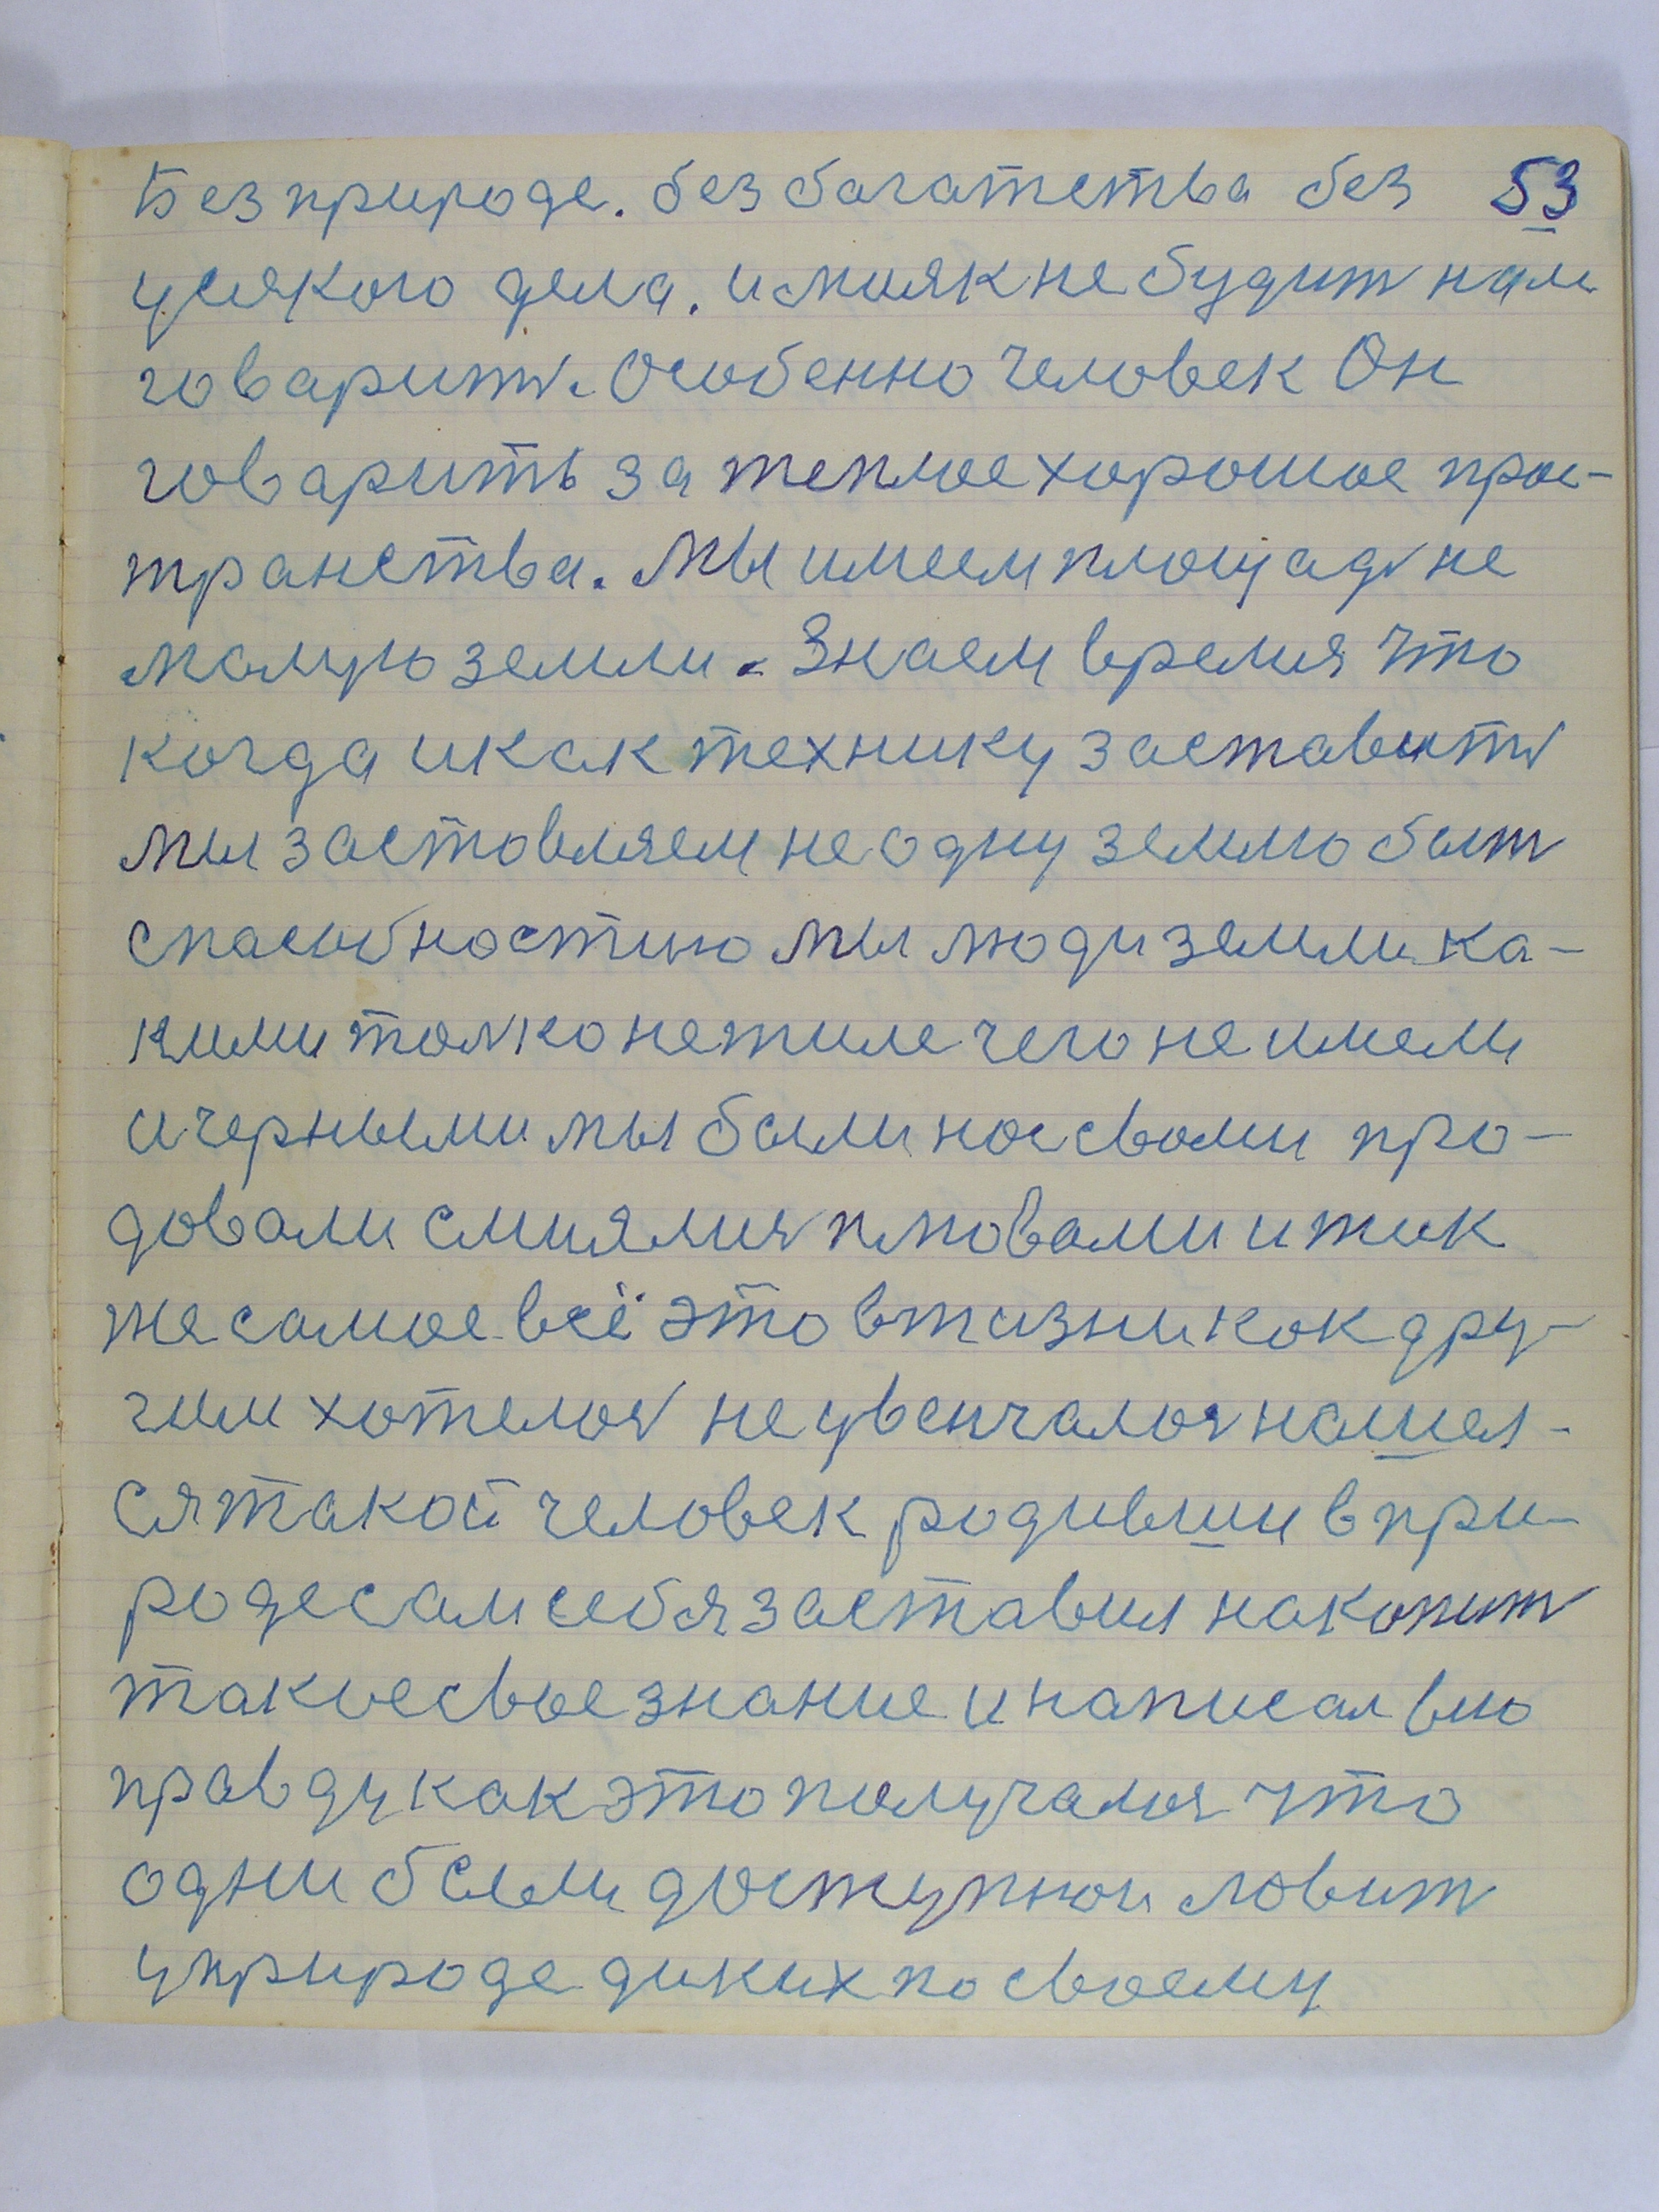 Без природе. без багатства без 53
усякого дела. и маяк не будит нам
говарить. Особенно человек Он
говарить за теплое хорошое прос-
транства. Мы имеем площадь не
малую земли. Знаем время что
когда и как технику заставить
мы заставляем не одну землю быть
спасобностию мы люди земли ка-
кими только не жиле чего не имели
и черными мы были нас своми про-
довали смиялися плювали и так
же самое всё это в жизни как дру-
гим хотелося не увенчалося нашел-
ся такой человек родивши в при-
роде сам себя заставил накопить
такие свое знание и написал
правду как это получалося что
одни были доступнои ловить
у природе диких по своему